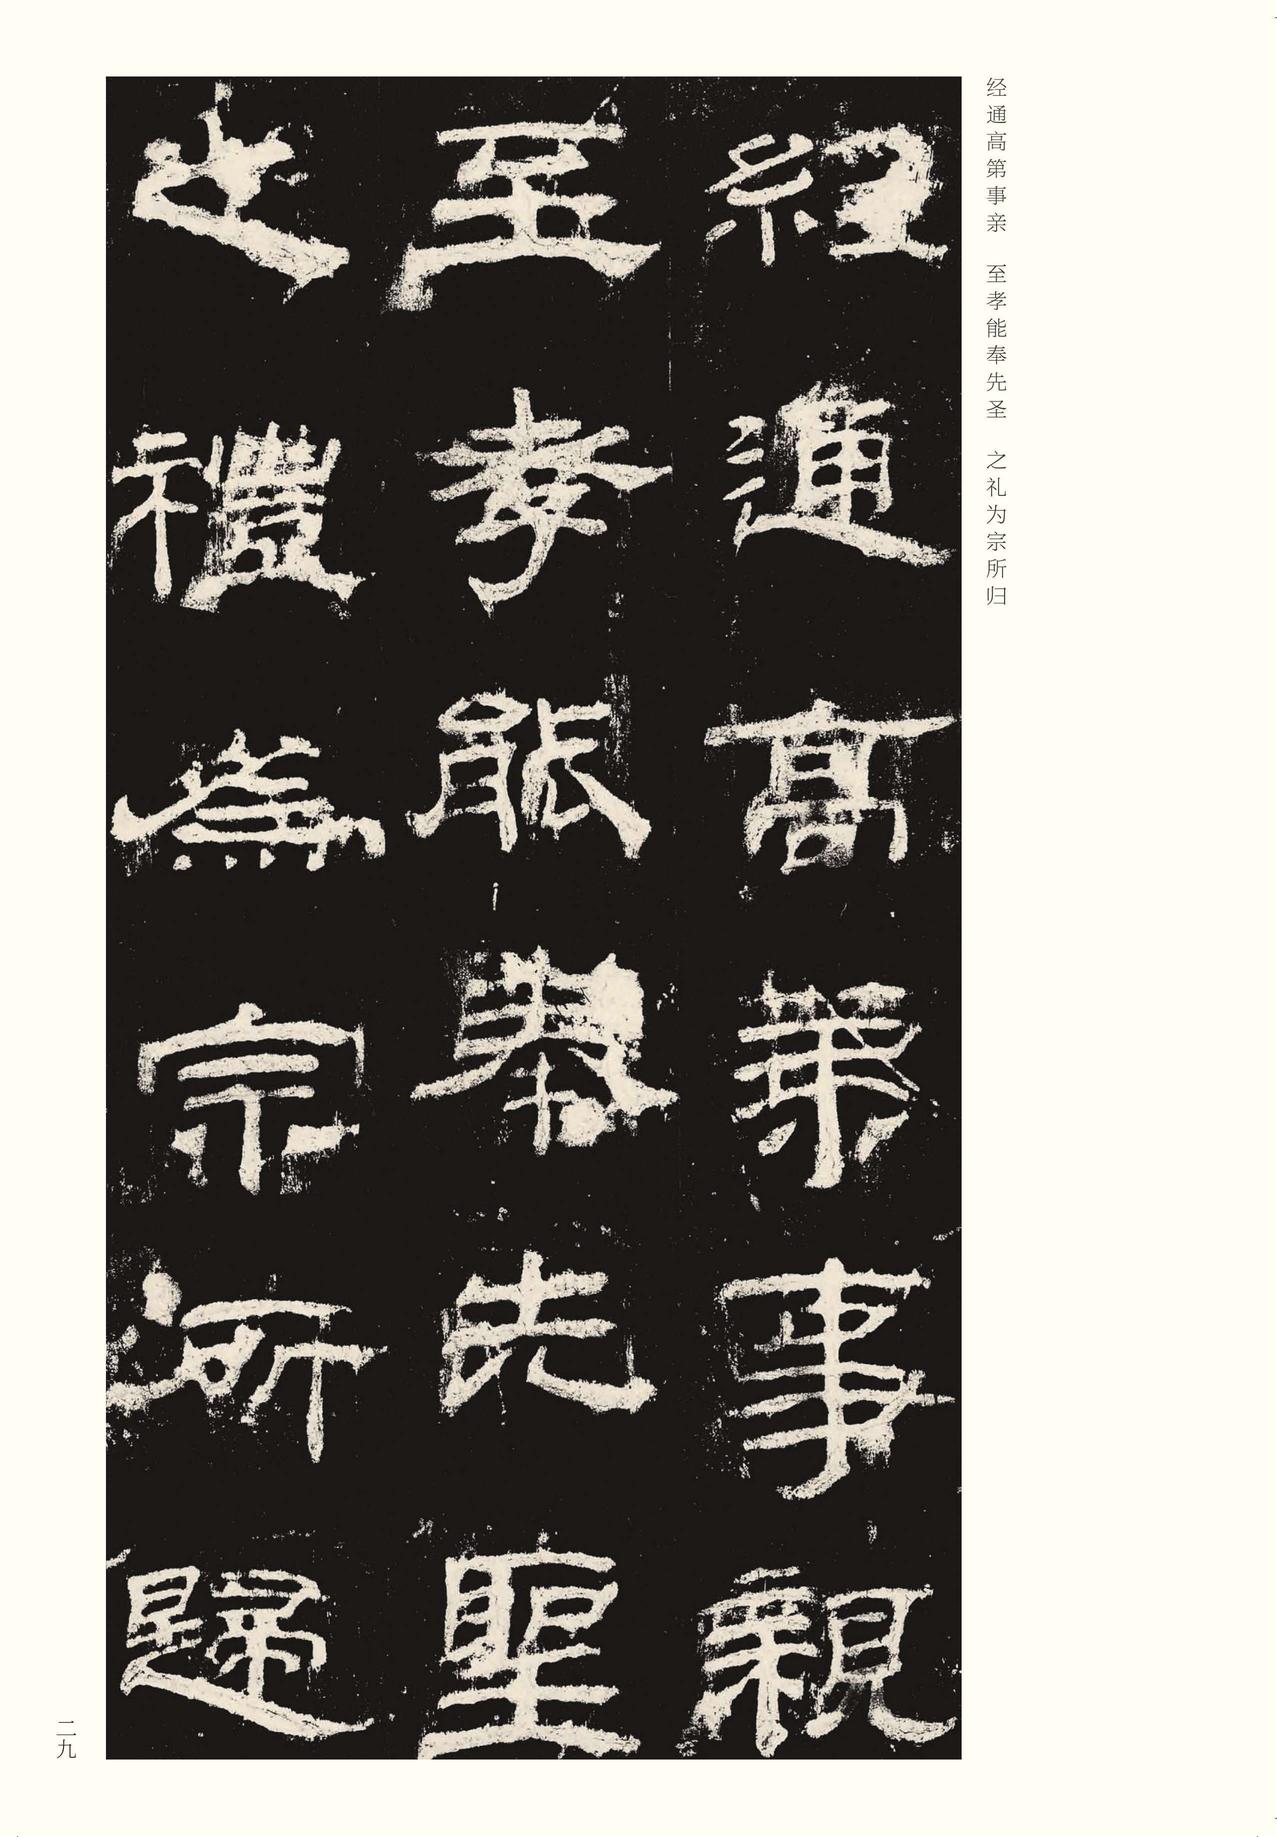 经通高第事亲　至孝能奉先圣　之礼为宗所归
經通高第事親
至孝能奉先聖
之禮為宗所歸
二九